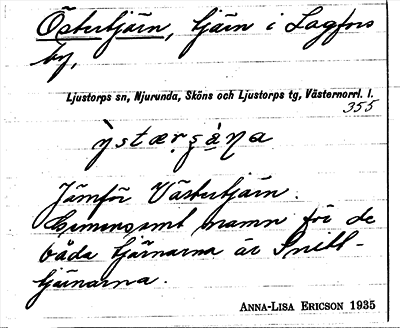 Östertjärn, tjärn i Lagfors
by,
Ljustorps sn, Njurunda, Sköns och Ljustorps tg, Västernorrl. l.
355
Jämför Västertjärn.
Gemensamt namn för de
båda tjärnarna är Snibb-
tjärnarna.
ANNA-LISA ERICSON 1935